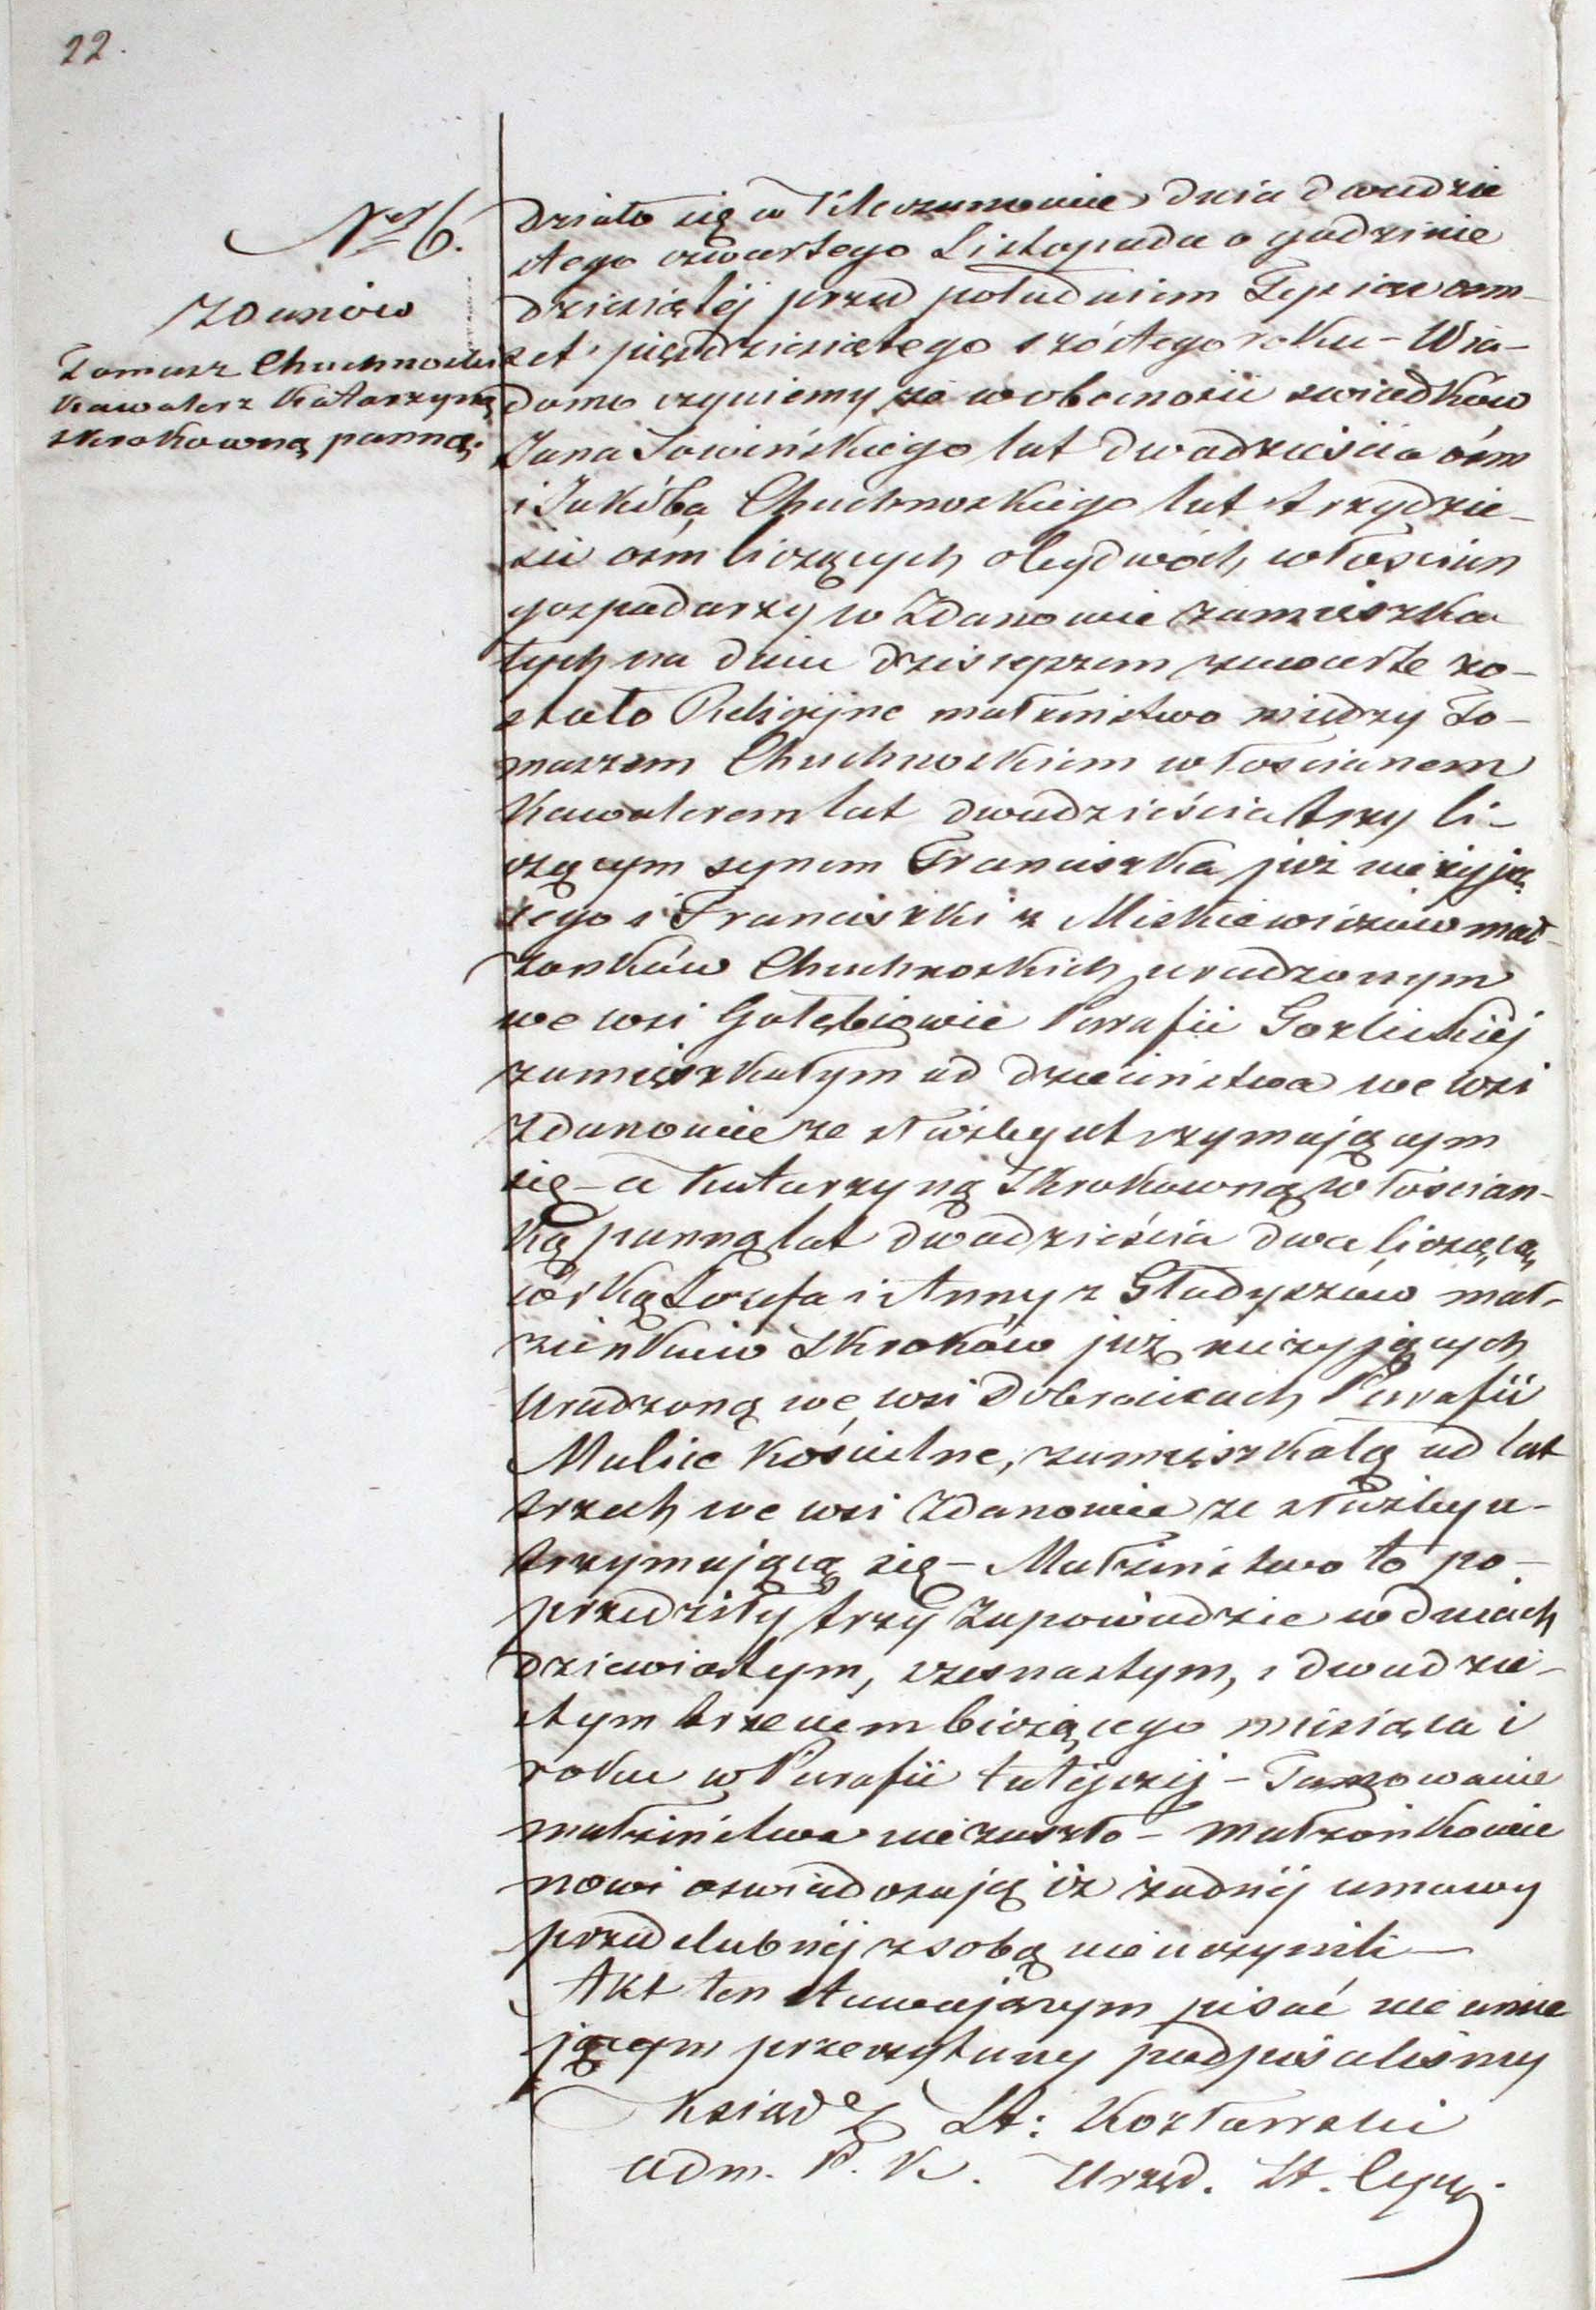 22.
Nr 6.
Zdanów
Tomasz Chuchnoski
Kawaler z Katarzyną
Skrokowną panną.
Działo się w Kleczanowie dnia dwudzie
stego czwartego Listopada o godzinie
dziesiątéj przed południem Tysiąc osm-
set pięćdziesiątego szóstego roku - Wia-
domo czyniemy że w obecności swiadków
Jana Sowińskiego lat dwadzieścia ośm
i Jakóba Chuchnoskiego lat trzydzie-
ści ośm liczących obydwóch włoscian
gospodarzy w Zdanowie zamieszka
łych na dniu dzisieyszem zawarte zo-
stało Religijne małżeństwo między To-
maszem Chuchnoskiem włoscianem
Kawalerem lat dwadzieścia trzy li-
czącym synem Franciszka już nieżyją
cego i Franciszki z Miskiewiczów mał-
żonków Chuchnoskich, urodzonym
we wsi Gołębiowie Parafii Gozlickiéj
zamieszkałym od dzieciństwa we wsi
Zdanowie ze służby utrzymującym
się - a Katarzyną Skrokowną włościan-
ką panną lat dwadzieścia dwa liczącą
córką Józefa i Anny z Gładyszów mał-
żeńków Skroków już nieżyjących
urodzoną we wsi Dobrocicach Parafii
Malice Kościelne, zamieszkałą od lat
trzech we wsi Zdanowie ze służby u-
trzymującą się - Małżeństwo to po-
przedziły trzy Zapowiedzie w dniach
dziewiątym, szesnastym, i dwudzie-
stym trzecim bieżącego miesiąca i
roku w Parafii tutéjszéj - Tamowanie
małżeństwa nie zaszło - małżonkowie
nowi oswiadczają iż żadnéj umowy
przedslubnéj z sobą nie uczynili -
Akt ten stawającym pisać nie umie
jącym przeczytany podpisalismy
Ksiądz St: Kozłarski
adm. P. K. Urzęd. St. Cyw.